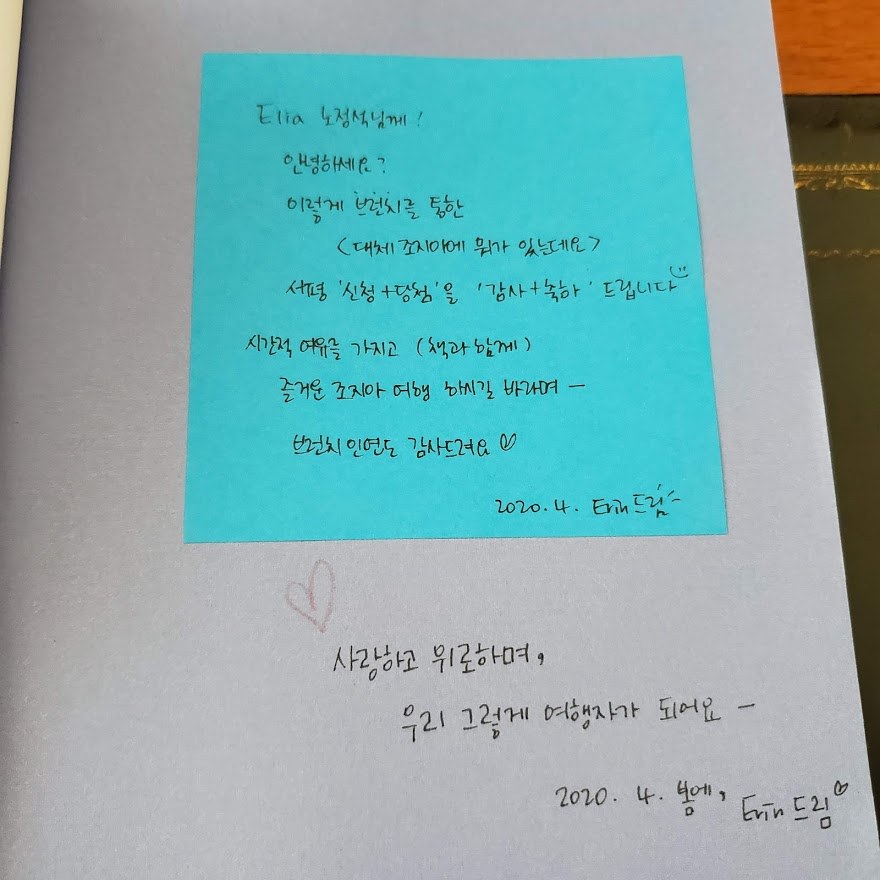 Elia 노정석님께!
안녕하세요?
이렇게 브런치를 통한
<대체 조지아에 뭐가 있는데요>
서평 '신청+당첨'을 '감사+축하' 드립니다
시간적 여유를 가지고 (책과 함께)
즐거운 조지아 여행 하시길 바라며 -
브런치 인연도 감사드려요♡
2020. 4. Erin드림
사랑하고 위로하며,
우리 그렇게 여행자가 되어요 -
2020. 4. 봄에, Erin드림♡